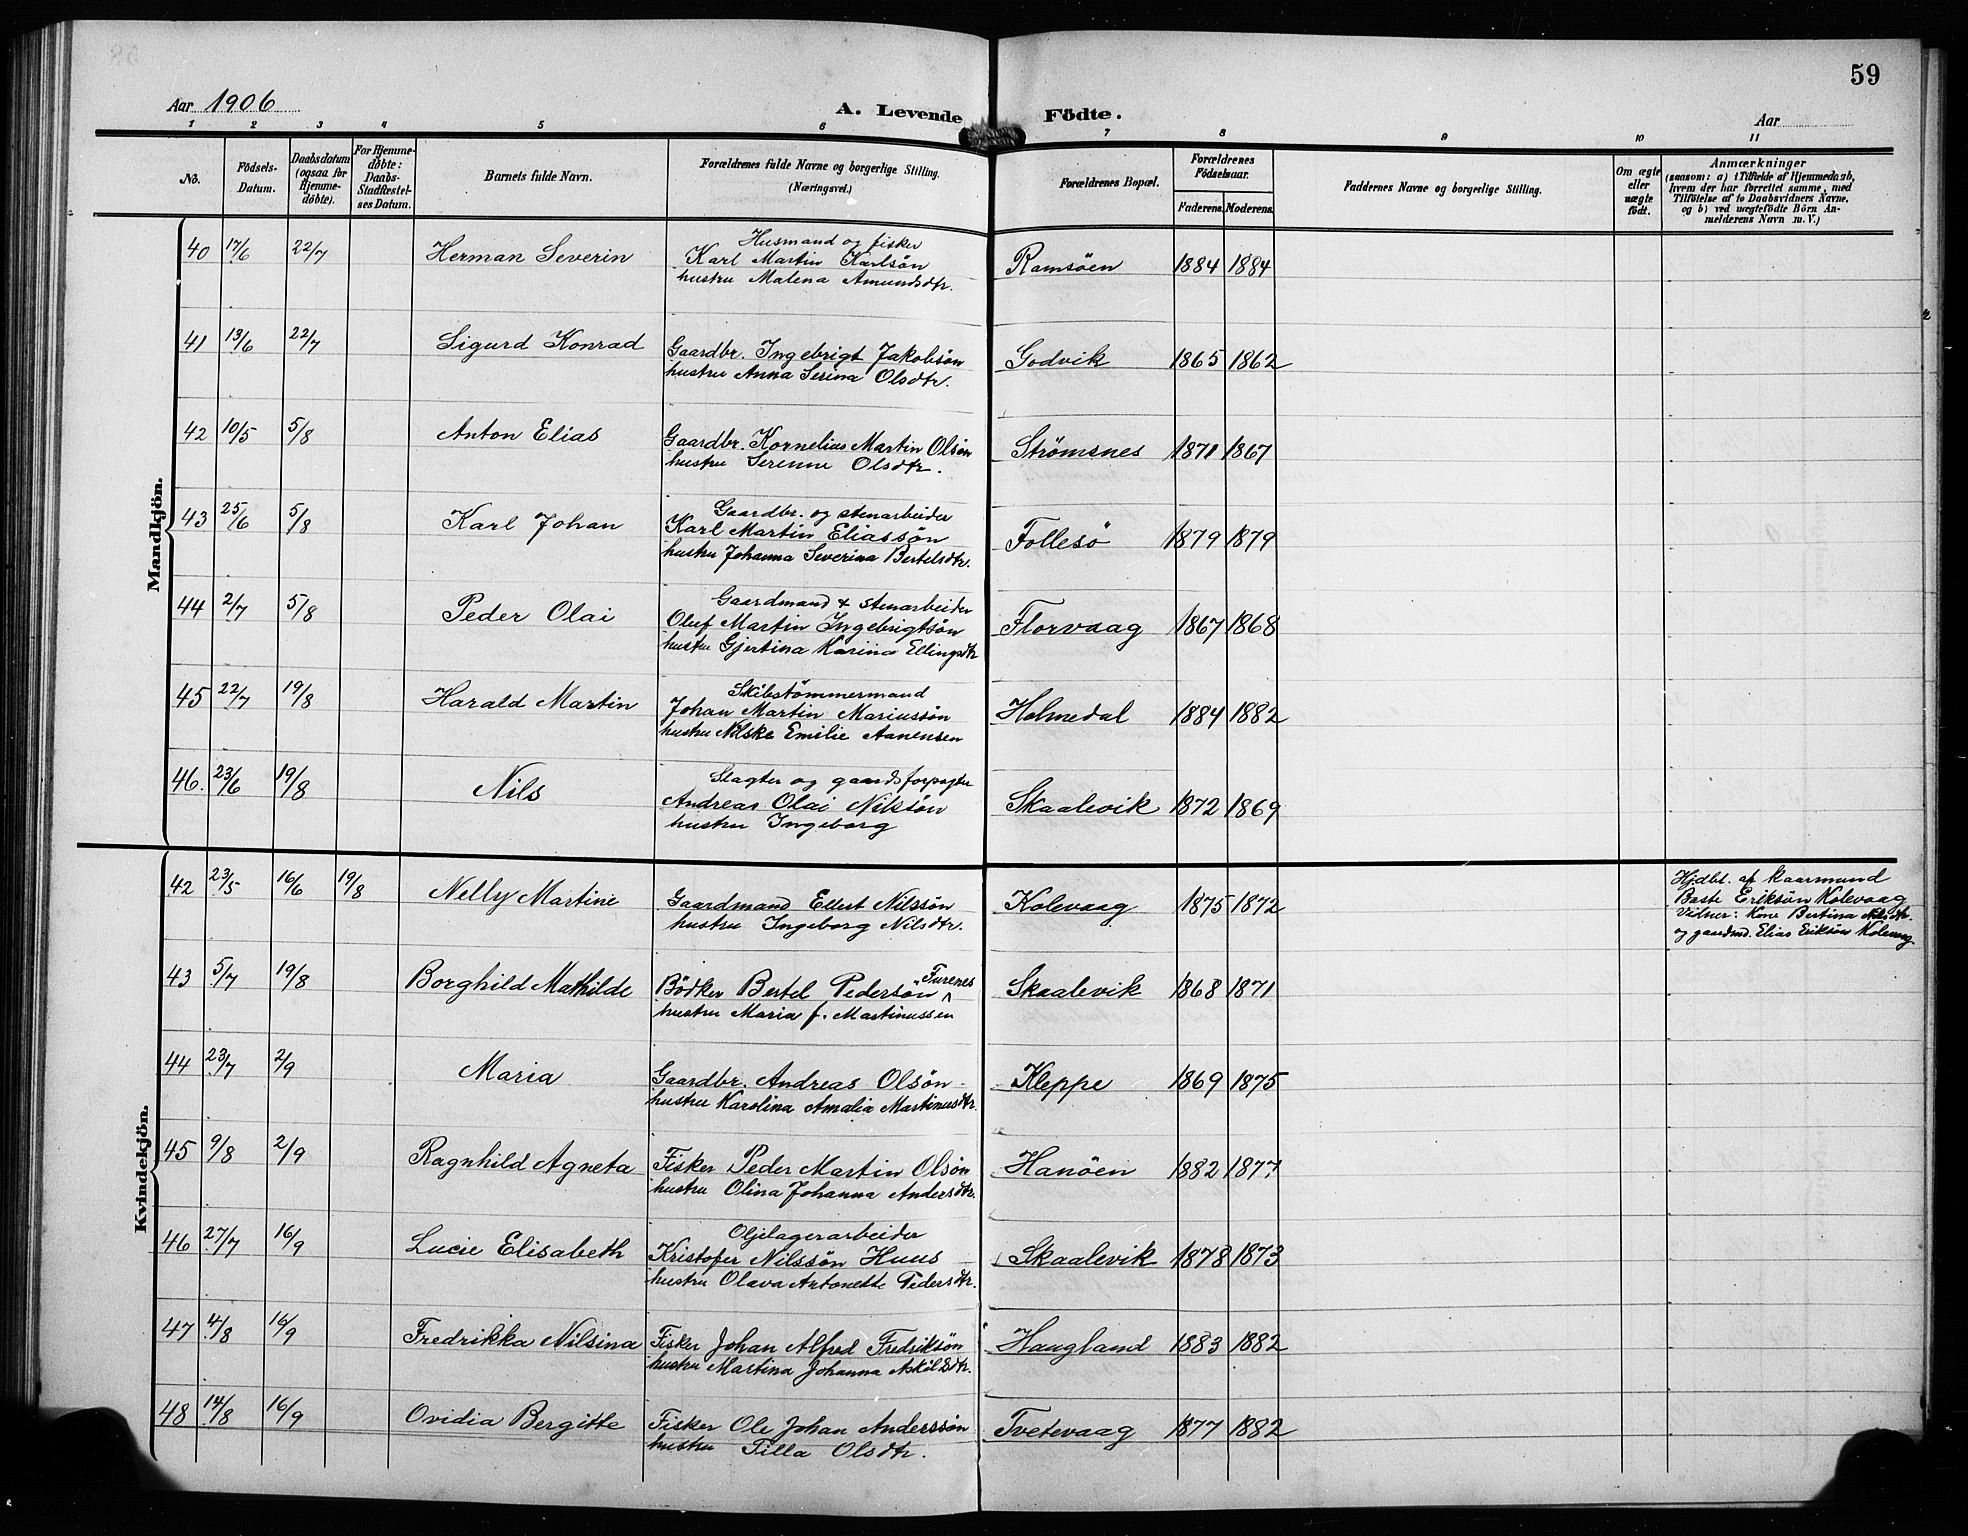 59
Aar 1906
A. Levende Födte.
Aar
1 2 3 4 5 6 7 8 9 10 11
No.
Födsels-Datum.
Daabsdatum (ogsaa for Hjemme-döbte).
For Hjemme-döbte: Daabs-Stadfæstel-ses Datum.
Barnets fulde Navn.
Forældrenes fulde Navne og borgerlige Stilling. (Næringsvei.)
Forældrenes Bopæl.
Forældrenes Födselsaar.
Faderens. Moderens.
Faddernes Navne og borgerlige Stilling.
Om ægte eller uægte födt.
Anmærkninger
(saasom: a) i Tilfælde af Hjemmedaab, hvem der har forrettet samme, med Tilföielse af to Daabsvidners Navne, og b) ved uægtefödte Börn An-melderens Navn m. V.)
Mandkjön.
Husmand og fisker
40 17/6 22/7 Herman Severin Karl Martin Karlsön Ramsöen 1884 1884
hustru Malena Amundsdtr.
41 13/6 22/7 Sigurd Konrad Gaardbr. Ingebrigt Jakobsön Godvik 1865 1862
hustru Anna Serina Olsdtr.
42 10/5 5/8 Anton Elias Gaardbr. Kornelius Martin Olsön Strømsnes 1871 1867
hustru Serenne Olsdtr.
Gaardbr. og stenarbeider
43 25/6 5/8 Karl Johan Karl Martin Eliassön Follesö 1879 1879
hustru Johanna Severina Bertelsdtr.
Gaardmand & stenarbeider
44 2/7 5/8 Peder Olai Oluf Martin Ingebrigtsön Florvaag 1867 1868
hustru Gjertina Karina Ellingsdtr
Skibstömmermand
45 22/7 19/8 Harald Martin Johan Martin Mariussön Holmedal 1884 1882
hustru Nilske Emilie Aanensen
Slagter og gaardsforpagter
46. 23/6 19/8 Nils Andreas Olai Nilssön Skaalevik 1872 1869
hustru Ingeborg
Kvindekjön.
42 23/5 16/6 19/8 Nelly Martine Gaardmand Ellert Nilssön Kolevaag 1875 1872
hustru Ingeborg Nilsdtr.
Hjdbt. af kaarmand
Baste Eriksön Kolevaag
Vitner: Kone Bertina Nilsdtr.
og gaardmd. Elias Eriksön Kolevaag
43 5/7 19/8 Borghild Mathilde Bödker Bertel Pedersön Turenes Skaalevik 1868 1871
hustru Maria f. Martinussen
44 23/7 2/9 Maria Gaardbr. Andreas Olsön Kleppe 1869 1875
hustru Karolina Amalia Martinusdtr.
45 9/8 2/9 Ragnhild Agneta Fisker Peder Martin Olsön Hanöen 1882 1877
hustru Olina Johanna Andersdtr.
Oljelagerarbeider
46 27/7 16/9 Lucie Elisabeth Kristofer Nilssön Huus Skaalevik 1878 1873
hustru Olava Antonette Pedersdtr.
47 4/8 16/9 Fredrikka Nilsina Fisker Johan Alfred Fredriksön Haugland 1883 1882
hustru Martina Johanna Askildsdtr.
48 14/8 16/9 Ovidia Bergitte Fisker Ole Johan Anderssön Tvetevaag 1877 1882
hustru Tilla Olsdtr.